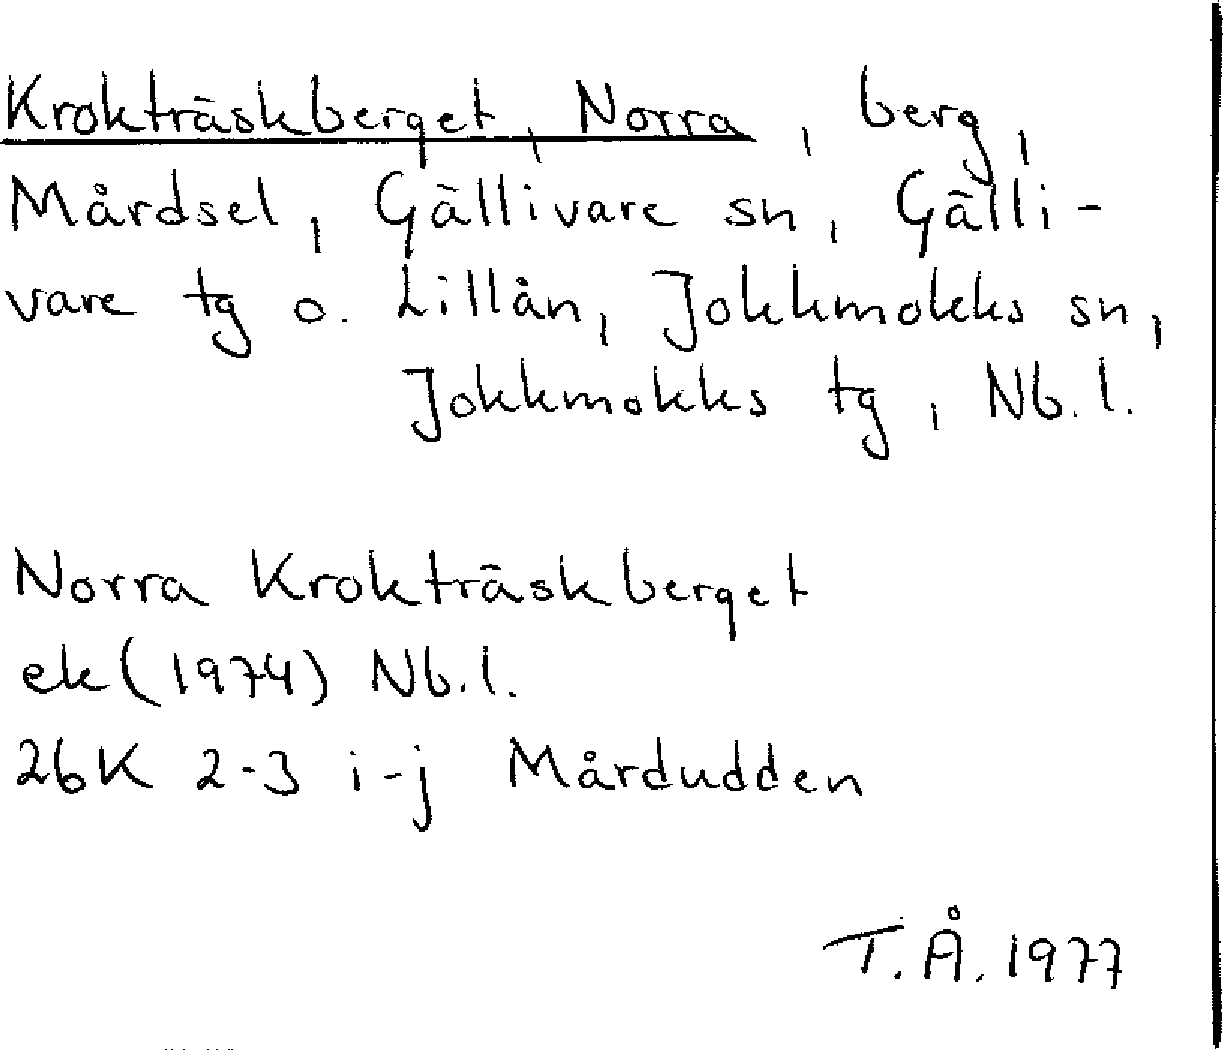 Krokträskberget, Norra, berg,
Mårdsel, Gällivare sn, Gälli-
vare tg o. Lillån, Jokkmokks sn,
Jokkmokks tg, Nb. l.
Norra Krokträskberget
ek (1974) Nb. l.
26K 2-3 i-j Mårdudden
T. Å. 1977